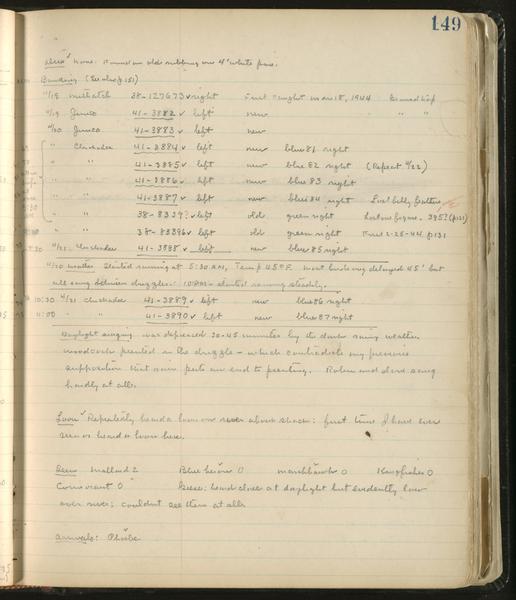 149
Deer: None. Found an old rubbing on 4" white pine.
Banding (See also p 151)
4/18 Nuthatch 38-127673 v right First caught Mar 18, 1944 Banded
4/19 Junco 41-3882 v left new " "
4/20 Junco 41-3883 v left new
" Chickadee 41-3884 v left new blue 81 right
" " 41-3885 v left new blue 82 right (Repeat 4/22)
" " 41-3886 v left new blue 83 right
" " 41-3887 v left new blue 84 right Lost belly feathers
" " 38-8339? v left old green right Last one figure. 395? (p131)
" " 38-83396 v left old green right First 2-25-44. p131
4/21 Chickadee 41-3888 v left new blue 85 right
4/20 Weather Started raining at 5:30 AM, Temp 45°F. Most birds delayed 45' but
all sang between drizzles. 10 AM - started raining steadily.
10:30 4/21 Chickadee 41-3889 v left new blue 86 right
11:00 " 41-3890 v left new blue 87 right
Daylight singing was depressed 30-45 minutes by the dark rainy weather.
Woodcock peented in the drizzle - which contradicts my previous
supposition that rain puts an end to peenting. Robin and dove sang
hardly at all.
Loon Repeatedly heard a loon on river above shack: first time I have ever
seen or heard a loon here.
Seen Mallard 2 Blue heron 0 Marsh hawk 0 Kingfisher 0
Cormorant 0 Geese: heard close at daylight but evidently low
over river; couldnt see them at all.
Arrivals: Phoebe